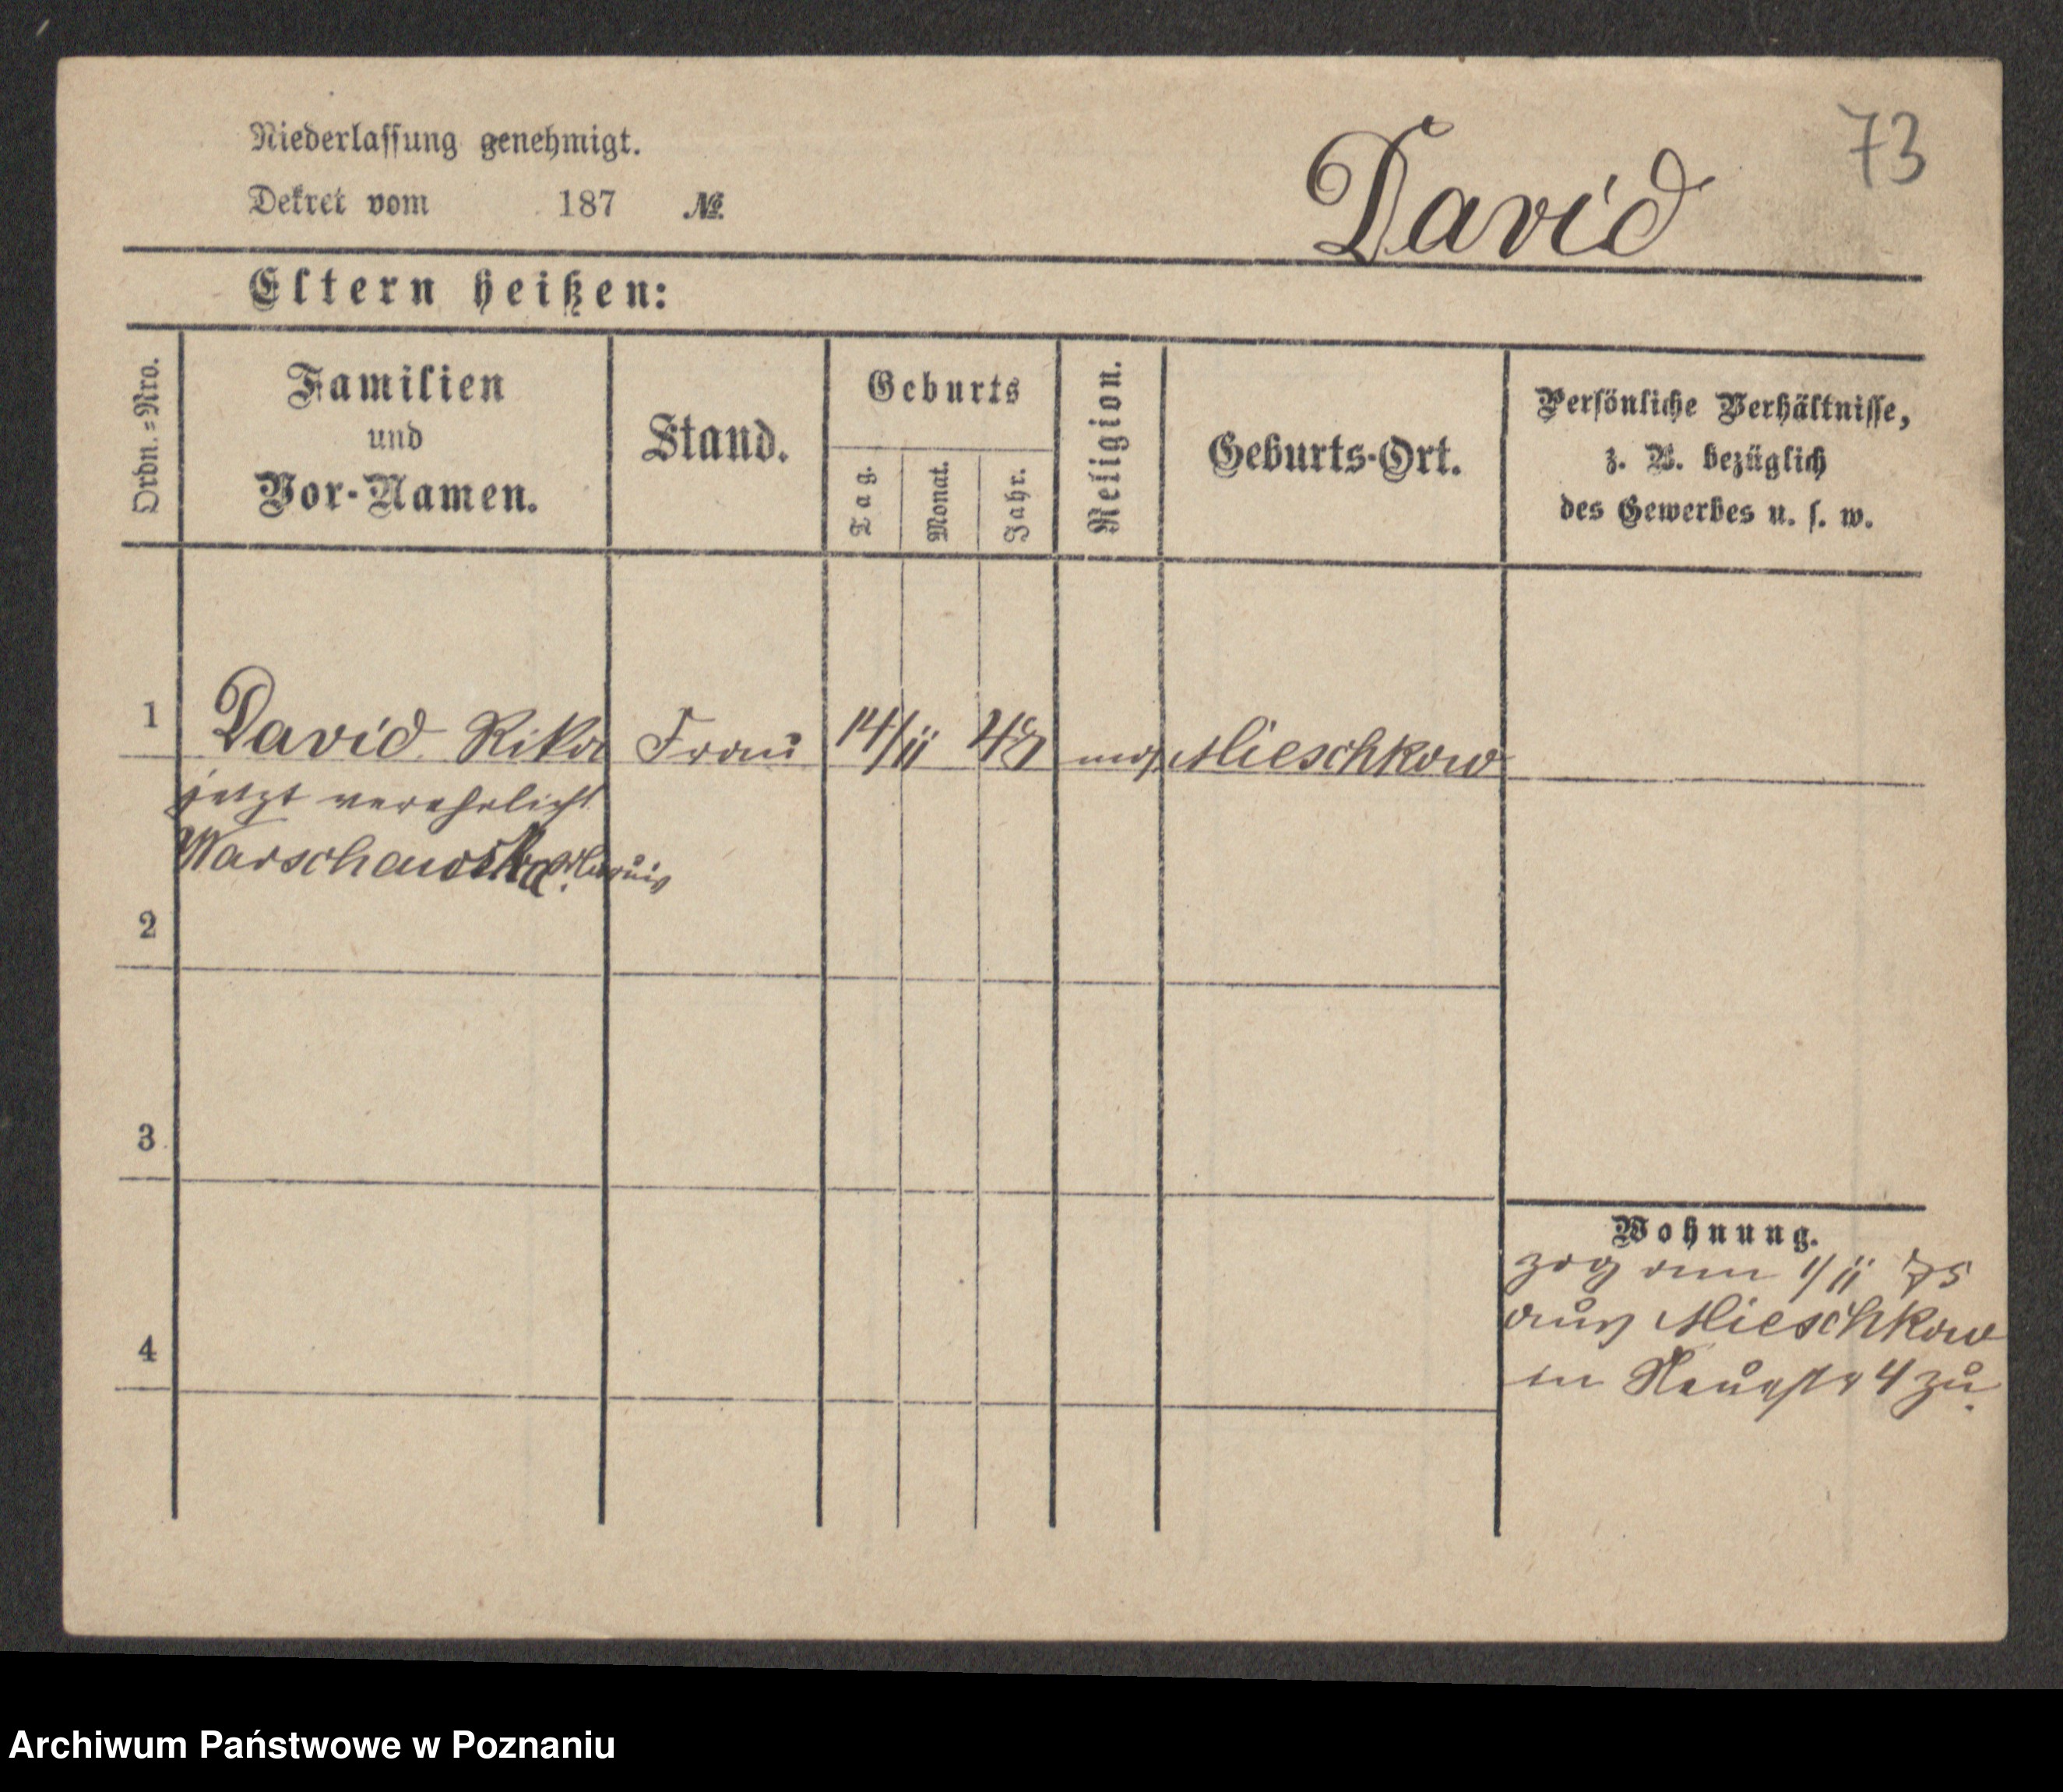 73
Niederlassung genehmigt.
Dekret vom 187 №
David
Eltern heißen:
Ordn.=Nro.
Familien
und
Vor-Namen.
Stand.
Geburts
Tag.
Monat.
Jahr.
Religion.
Geburts-Ort.
Persönliche Verhältnisse,
z. B. bezüglich
des Gewerbes u. s. w.
1 David Rika Frau 14/11 48 mos Mieschkow
jetzt verehelicht
Warschawska
2
3
4
Wohnung.
zog am 1/11 75
aus Mieschkow
in Neuestr 4 zu.
Archiwum Państwowe w Poznaniu